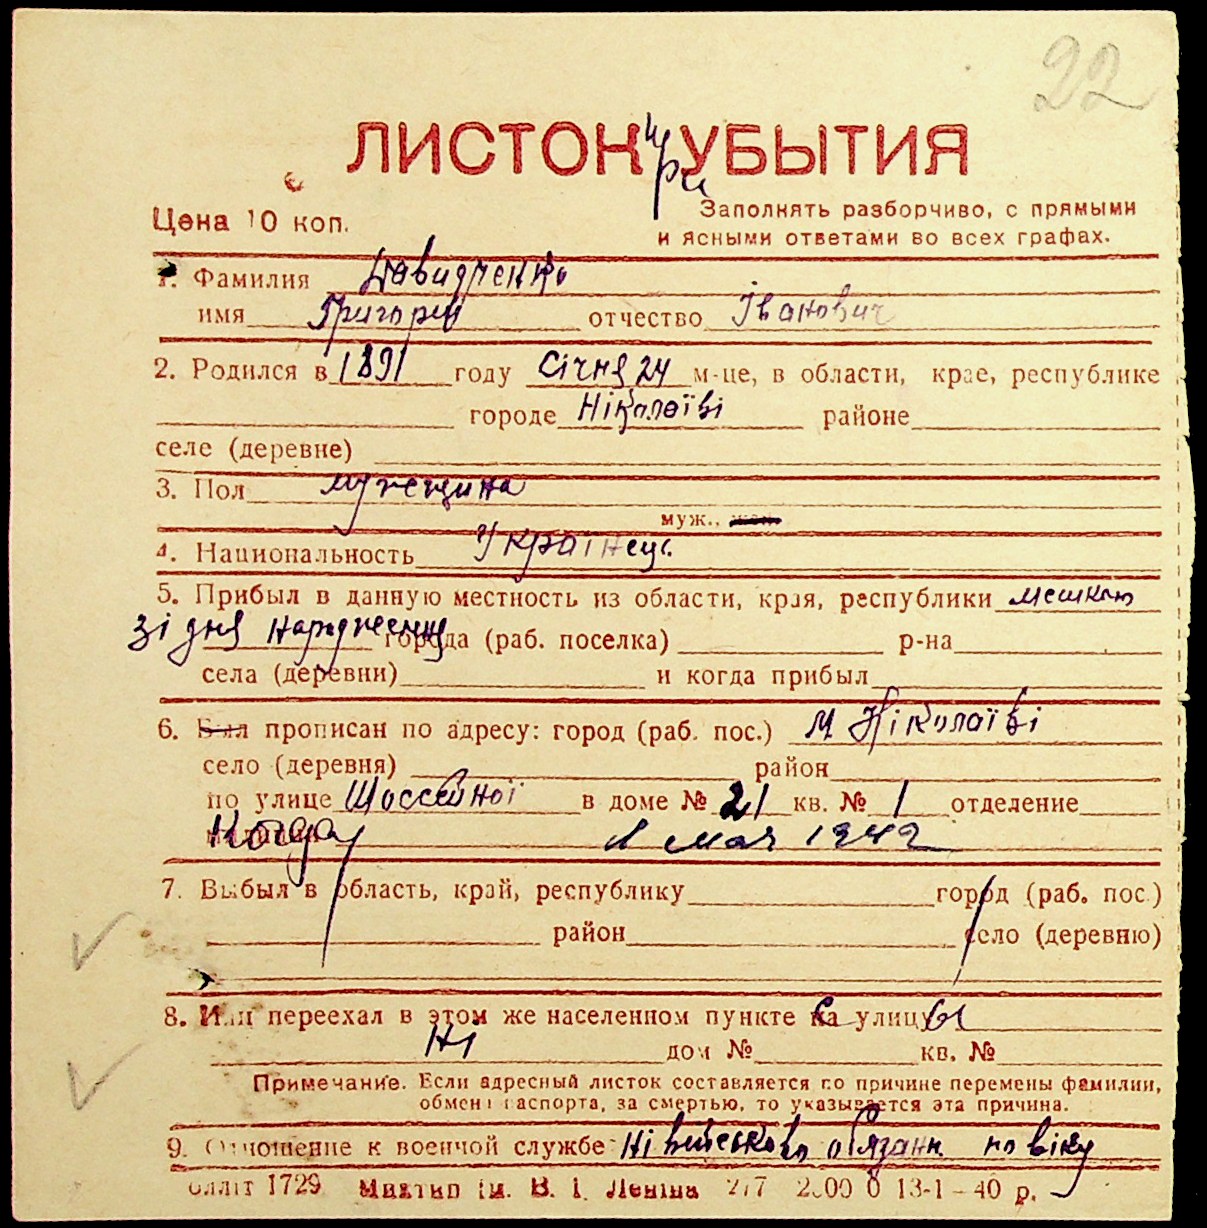 22
ЛИСТОК при УБЫТИЯ
Цена 10 коп.
Заполнять разборчиво, с прямыми
и ясными ответами во всех графах.
1. Фамилия Давидченко
имя Григорій отчество Іванович
2. Родился в 1891 году січня 24 м-це, в области, крае, республике
городе Ніколаїві районе
селе (деревне)
3. Пол мужчина
муж., жен.
4. Национальность Українец.
5. Прибыл в данную местность из области, края, республики мешкат
зі дня народження города (раб. поселка) р-на
села (деревни) и когда прибыл
6. Был прописан по адресу: город (раб. пос.) м Ніколаїві
село (деревня) район
по улице Шоссейної в доме № 21 кв. № 1 отделение
милиции Когда 1 мая 1942
7. Выбыл в область, край, республику город (раб. пос.)
район село (деревню)
8. Или переехал в этом же населенном пункте на улицу
Ні дом № кв. №
Примечание. Если адресный листок составляется по причине перемены фамилии,
обмена паспорта, за смертью, то указывается эта причина.
9. Отношение к военной службе Ні військово обязан. по віку
Облліт 1729 Миктип ім. В. І. Леніна 217 2000 б 13-1-40 р.